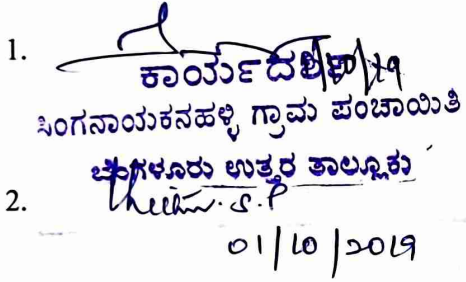 1.
ಕಾರ್ಯದರ್ಶಿ
ಸಿಂಗನಾಯಕನಹಳ್ಳಿ ಗ್ರಾಮ ಪಂಚಾಯಿತಿ
ಬೆಂಗಳೂರು ಉತ್ತರ ತಾಲ್ಲೂಕು
2. S.P
01/10/2019